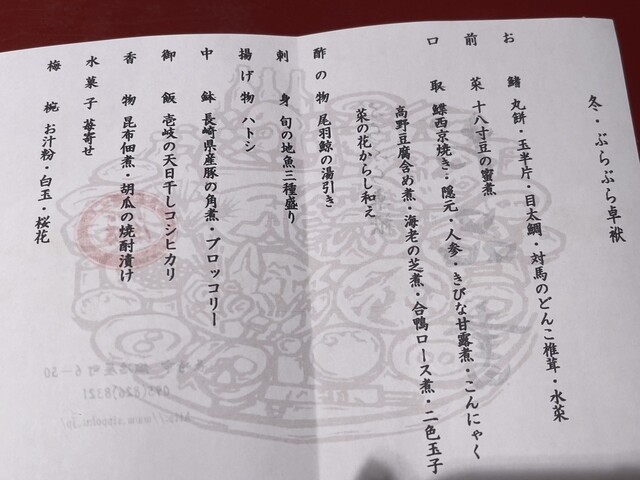 冬・ぶらぶら卓袱
お鰭 丸餅・玉半片・目太鯛・対馬のどんこ椎茸・水菜
前菜 十八寸豆の蜜煮
口取 鰈西京焼き・隠元・人参・きびな甘露煮・こんにゃく
高野豆腐含め煮・海老の芝煮・合鴨ロース煮・二色玉子
菜の花からし和え
酢の物 尾羽鯨の湯引き
刺身 旬の地魚三種盛り
揚げ物 ハトシ
中鉢 長崎県産豚の角煮・ブロッコリー
御飯 壱岐の天日干しコシヒカリ
香物 昆布佃煮・胡瓜の焼酎漬け
水菓子 苺寄せ
梅椀 お汁粉・白玉・桜花